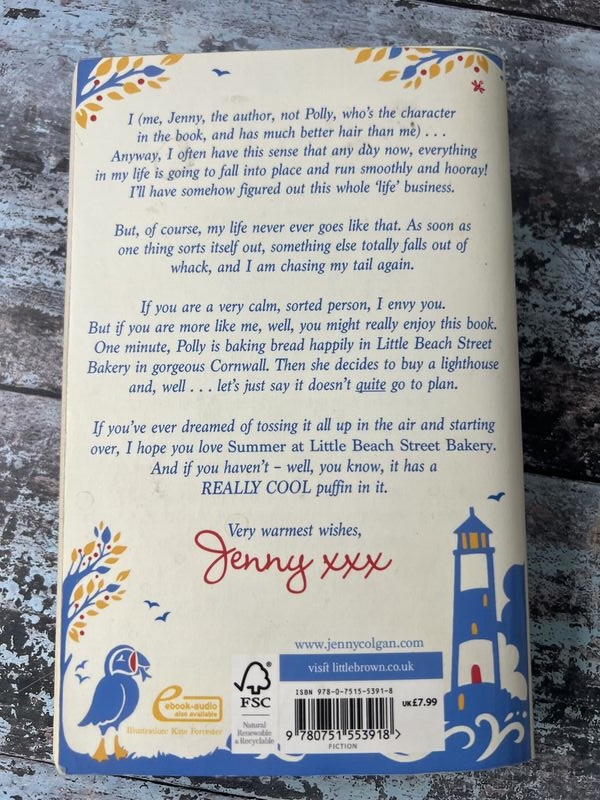 I (me, Jenny, the author, not Polly, who's the character
in the book, and has much better hair than me) . . .
Anyway, I often have this sense that any day now, everything
in my life is going to fall into place and run smoothly and hooray!
I'll have somehow figured out this whole 'life' business.
But, of course, my life never ever goes like that. As soon as
one thing sorts itself out, something else totally falls out of
whack, and I am chasing my tail again.
If you are a very calm, sorted person, I envy you.
But if you are more like me, well, you might really enjoy this book.
One minute, Polly is baking bread happily in Little Beach Street
Bakery in gorgeous Cornwall. Then she decides to buy a lighthouse
and, well . . . let's just say it doesn't quite go to plan.
If you've ever dreamed of tossing it all up in the air and starting
over, I hope you love Summer at Little Beach Street Bakery.
And if you haven't – well, you know, it has a
REALLY COOL puffin in it.
Very warmest wishes,
Jenny xxx
www.jennycolgan.com
visit littlebrown.co.uk
ISBN 978-0-7515-5391-8
UK £7.99
9 780751 553918 >
FICTION
FSC
Natural
Renewable
& Recyclable
ebook-audio
also available
Illustration: Kate Forrester